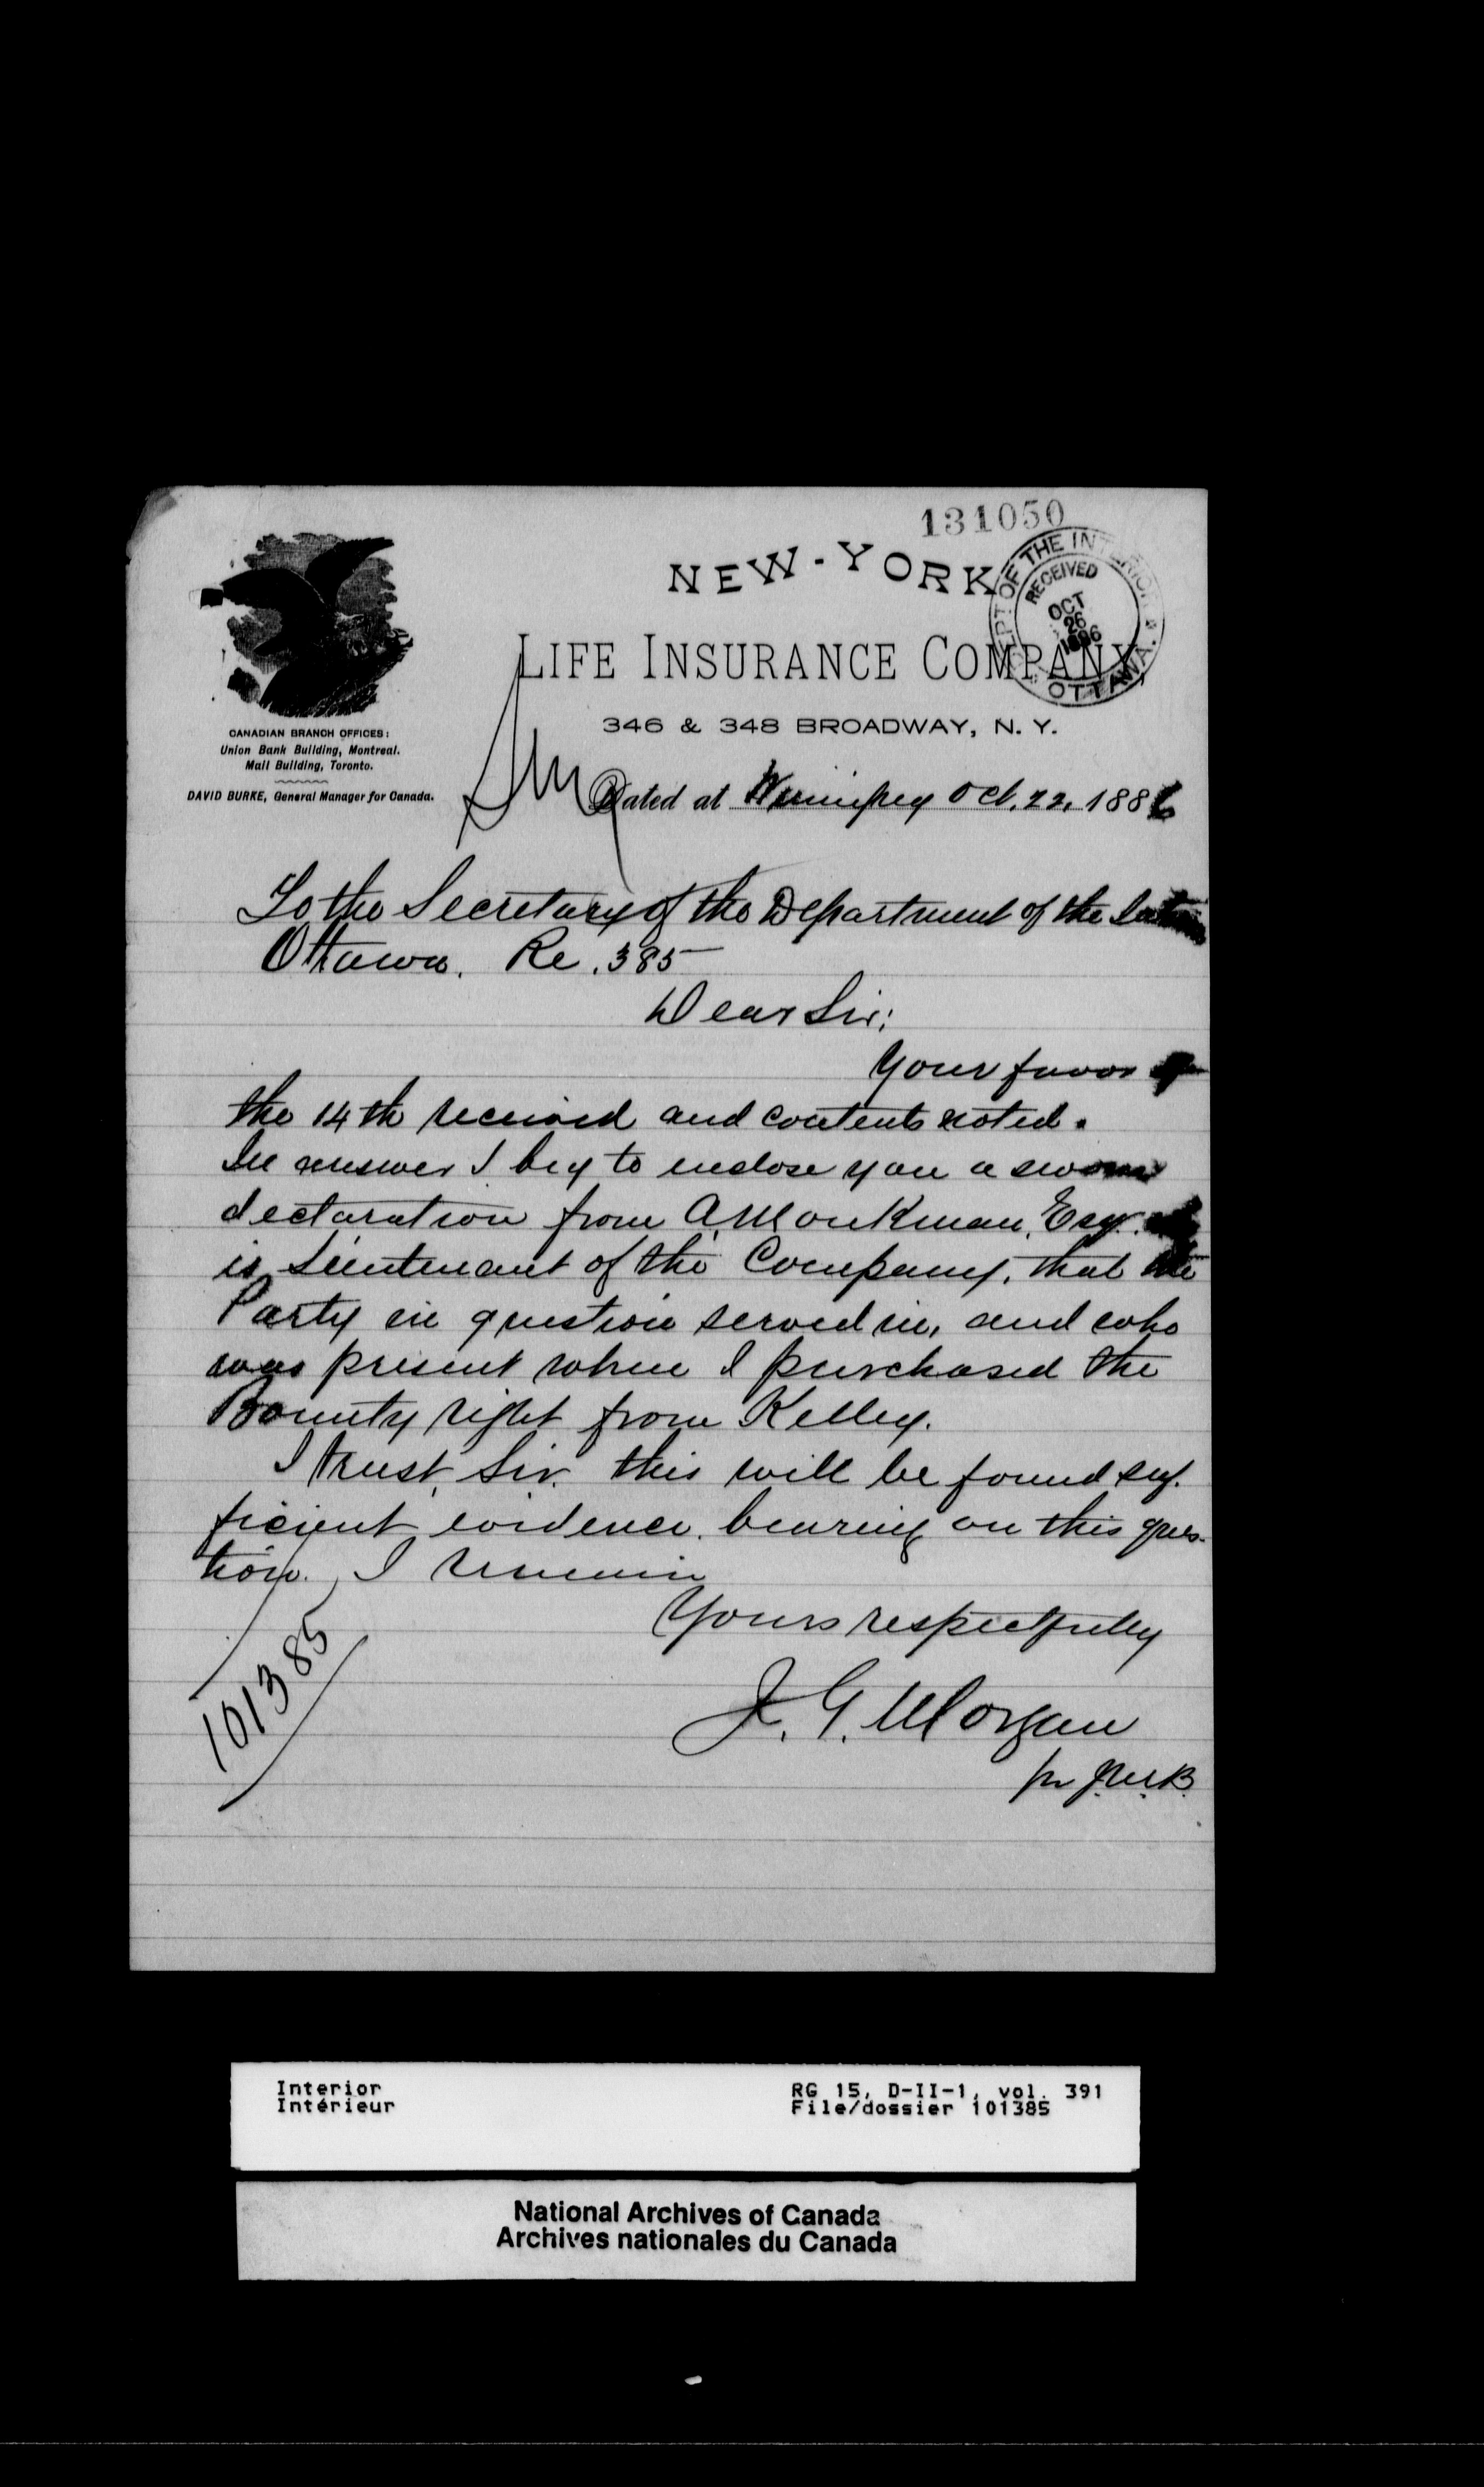 131050
NEW-YORK
LIFE INSURANCE COMPANY,
346 & 348 BROADWAY, N. Y.
DEPT OF THE INTERIOR
RECEIVED
OCT
26
1886
OTTAWA.
CANADIAN BRANCH OFFICES:
Union Bank Building, Montreal.
Mail Building, Toronto.
DAVID BURKE, General Manager for Canada.
Dated at Winnipeg Oct. 22, 1886
To the Secretary of the Department of the
Ottawa. Re. 385
Dear Sir:
Your favor of
the 14th received and contents noted.
In answer I beg to enclose you a sworn
declaration from A. Monkman, Esq.
is Lieutenant of the Company, that the
Party in question served in, and who
was present when I purchased the
Bounty right from Kelley.
I trust, Sir. this will be found suf-
ficient evidence bearing on this ques-
tion. I remain
Yours respectfully
J. G. Morgan
101385
Interior
Intérieur
RG 15, D-II-1, vol. 391
File/dossier 101385
National Archives of Canada
Archives nationales du Canada